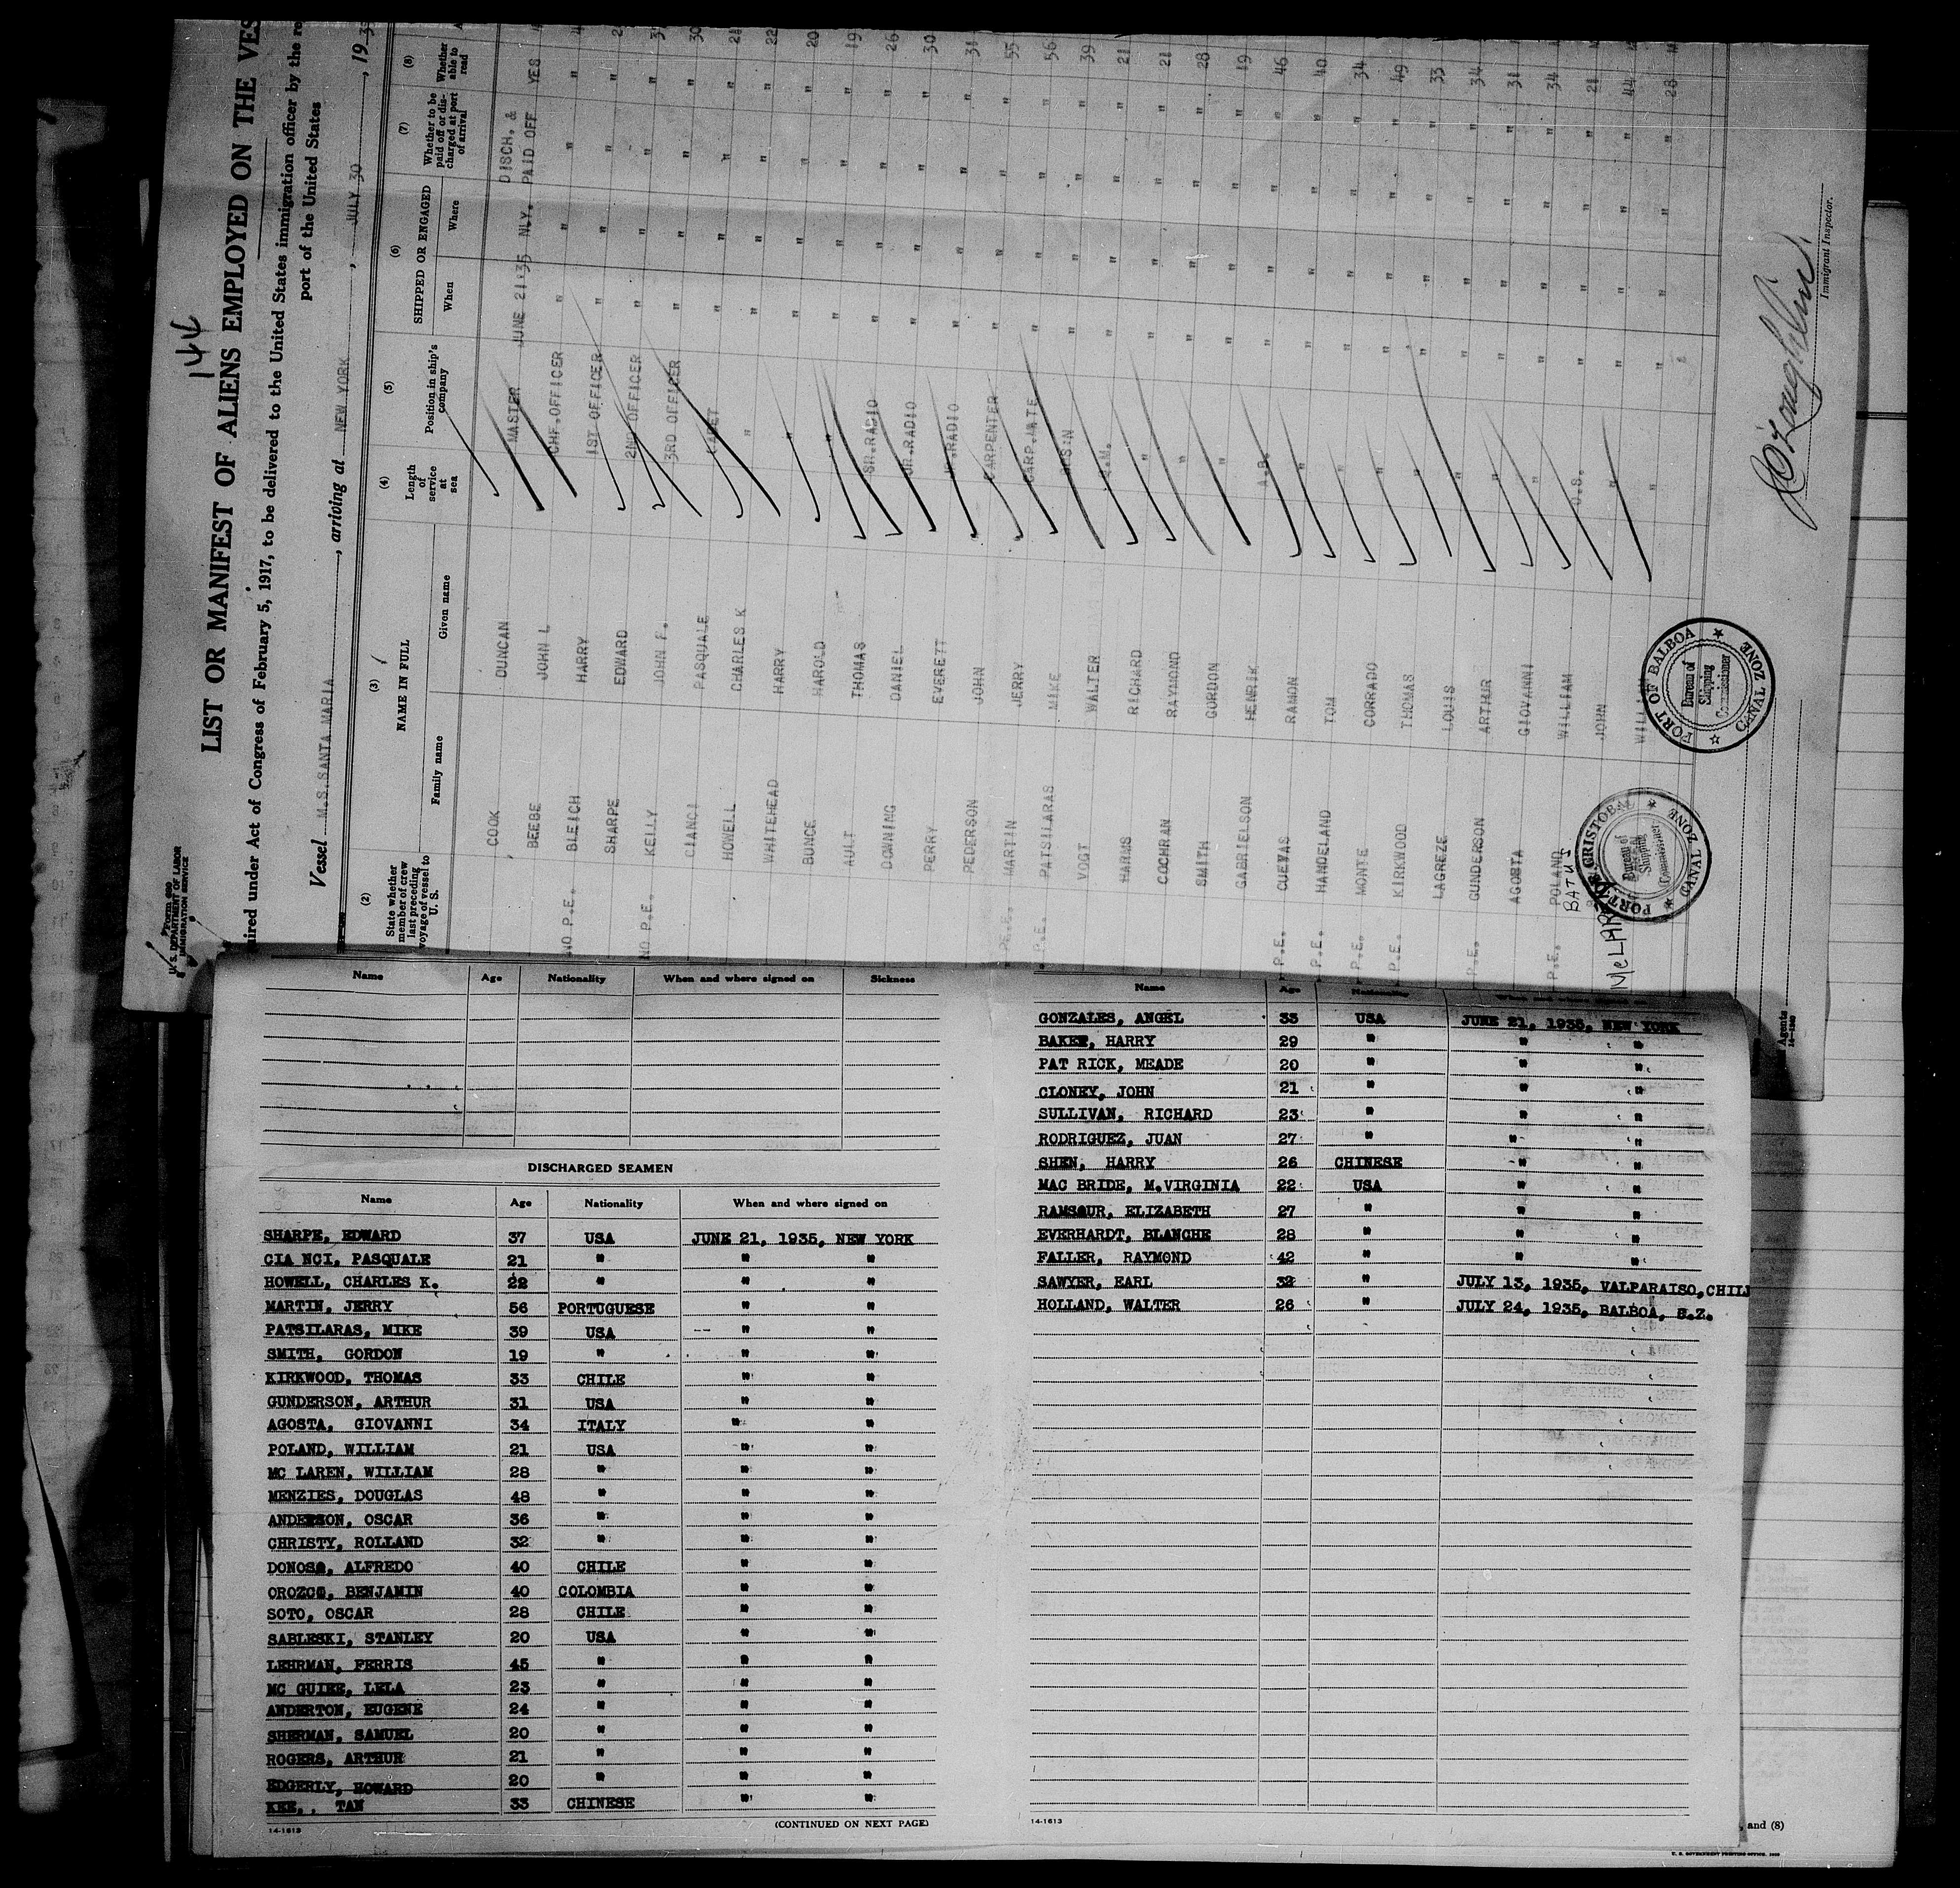 144
Form 689
U. S. DEPARTMENT OF LABOR
IMMIGRATION SERVICE
LIST OR MANIFEST OF ALIENS EMPLOYED ON THE VES
uired under Act of Congress of February 5, 1917, to be delivered to the United States immigration officer by the re
port of the United States
Vessel M.S. SANTA MARIA, arriving at NEW YORK, JULY 30, 1935
(2) (3) (4) (5) (6) (7) (8)
State whether member of crew last preceding voyage of vessel to U. S.
NAME IN FULL
Family name Given name
Length of service at sea
Position in ship's company
SHIPPED OR ENGAGED
When Where
Whether to be paid off or discharged at port of arrival
Whether able to read
COOK DUNCAN MASTER JUNE 21'35 NLY. DISCH. & PAID OFF YES
BEEBE JOHN L CHF. OFFICER " " " "
NO P.E. BLEICH HARRY 1ST OFFICER " " " "
SHARPE EDWARD 2ND OFFICER " " " "
NO P.E. KELLY JOHN F. 3RD OFFICER " " " "
CIANCI PASQUALE CADET " " " "
HOWELL CHARLES K " " " " "
WHITEHEAD HARRY " " " " "
BUNCE HAROLD " " " " "
AULT THOMAS SR.RADIO " " " "
DOWNING DANIEL JR.RADIO " " " "
PERRY EVERETT JR.RADIO " " " "
PEDERSON JOHN CARPENTER " " " "
P.E. MARTIN JERRY CARP.MATE " " " "
P.E. PATSILARAS MIKE " " " "
VOGT WALTER Q.M. " " " "
HARMS RICHARD " " " " "
COCHRAN RAYMOND " " " " "
SMITH GORDON " " " " "
GABRIELSON HENRIK A.B. " " " "
P.E. CUEVAS RAMON " " " " "
P.E. HANDELAND TOM " " " " "
P.E. MONTE CORRADO " " " " "
P.E. KIRKWOOD THOMAS " " " " "
LAGREZE LOUIS " " " " "
P.E. GUNDERSON ARTHUR " " " " "
AGOSTA GIOVANNI " " " " "
P.E. POLAND WILLIAM O.S. " " " "
BATUS JOHN " " " " "
McLAREN WILLIAM " " " " "
PORT OF BALBOA
CANAL ZONE
Bureau of Shipping Commissioner
PORT OF CRISTOBAL
CANAL ZONE
Bureau of Shipping Commissioner
Immigrant Inspector.
Agents
Name Age Nationality When and where signed on Sickness
DISCHARGED SEAMEN
Name Age Nationality When and where signed on
SHARPE, EDWARD 37 USA JUNE 21, 1935, NEW YORK
CIA NCI, PASQUALE 21 " " "
HOWELL, CHARLES K. 22 " " "
MARTIN, JERRY 56 PORTUGUESE " "
PATSILARAS, MIKE 39 USA " "
SMITH, GORDON 19 " " "
KIRKWOOD, THOMAS 33 CHILE " "
GUNDERSON, ARTHUR 31 USA " "
AGOSTA, GIOVANNI 34 ITALY " "
POLAND, WILLIAM 21 USA " "
MC LAREN, WILLIAM 28 " " "
MENZIES, DOUGLAS 48 " " "
ANDERSON, OSCAR 36 " " "
CHRISTY, ROLLAND 32 " " "
DONOSO, ALFREDO 40 CHILE " "
OROZCO, BENJAMIN 40 COLOMBIA " "
SOTO, OSCAR 28 CHILE " "
SABLESKI, STANLEY 20 USA " "
LEHRMAN, FERRIS 45 " " "
MC GUIRE, LELA 23 " " "
ANDERTON, EUGENE 24 " " "
SHERMAN, SAMUEL 20 " " "
ROGERS, ARTHUR 21 " " "
EDGERLY, HOWARD 20 " " "
KEE, , TAN 33 CHINESE " "
14-1613 (CONTINUED ON NEXT PAGE)
Name Age Nationality When and where signed on
GONZALES, ANGEL 33 USA JUNE 21, 1935, NEW YORK
BAKER, HARRY 29 " " "
PAT RICK, MEADE 20 " " "
CLONEY, JOHN 21 " " "
SULLIVAN, RICHARD 23 " " "
RODRIGUEZ, JUAN 27 " " "
SHEN, HARRY 26 CHINESE " "
MAC BRIDE, M.VIRGINIA 22 USA " "
RAMSOUR, ELIZABETH 27 " " "
EVERHARDT, BLANCHE 28 " " "
FALLER, RAYMOND 42 " " "
SAWYER, EARL 32 " JULY 13, 1935, VALPARAISO,CHIL
HOLLAND, WALTER 26 " JULY 24, 1935, BALBOA, C.Z.
14-1613
, and (8)
U. S. GOVERNMENT PRINTING OFFICE